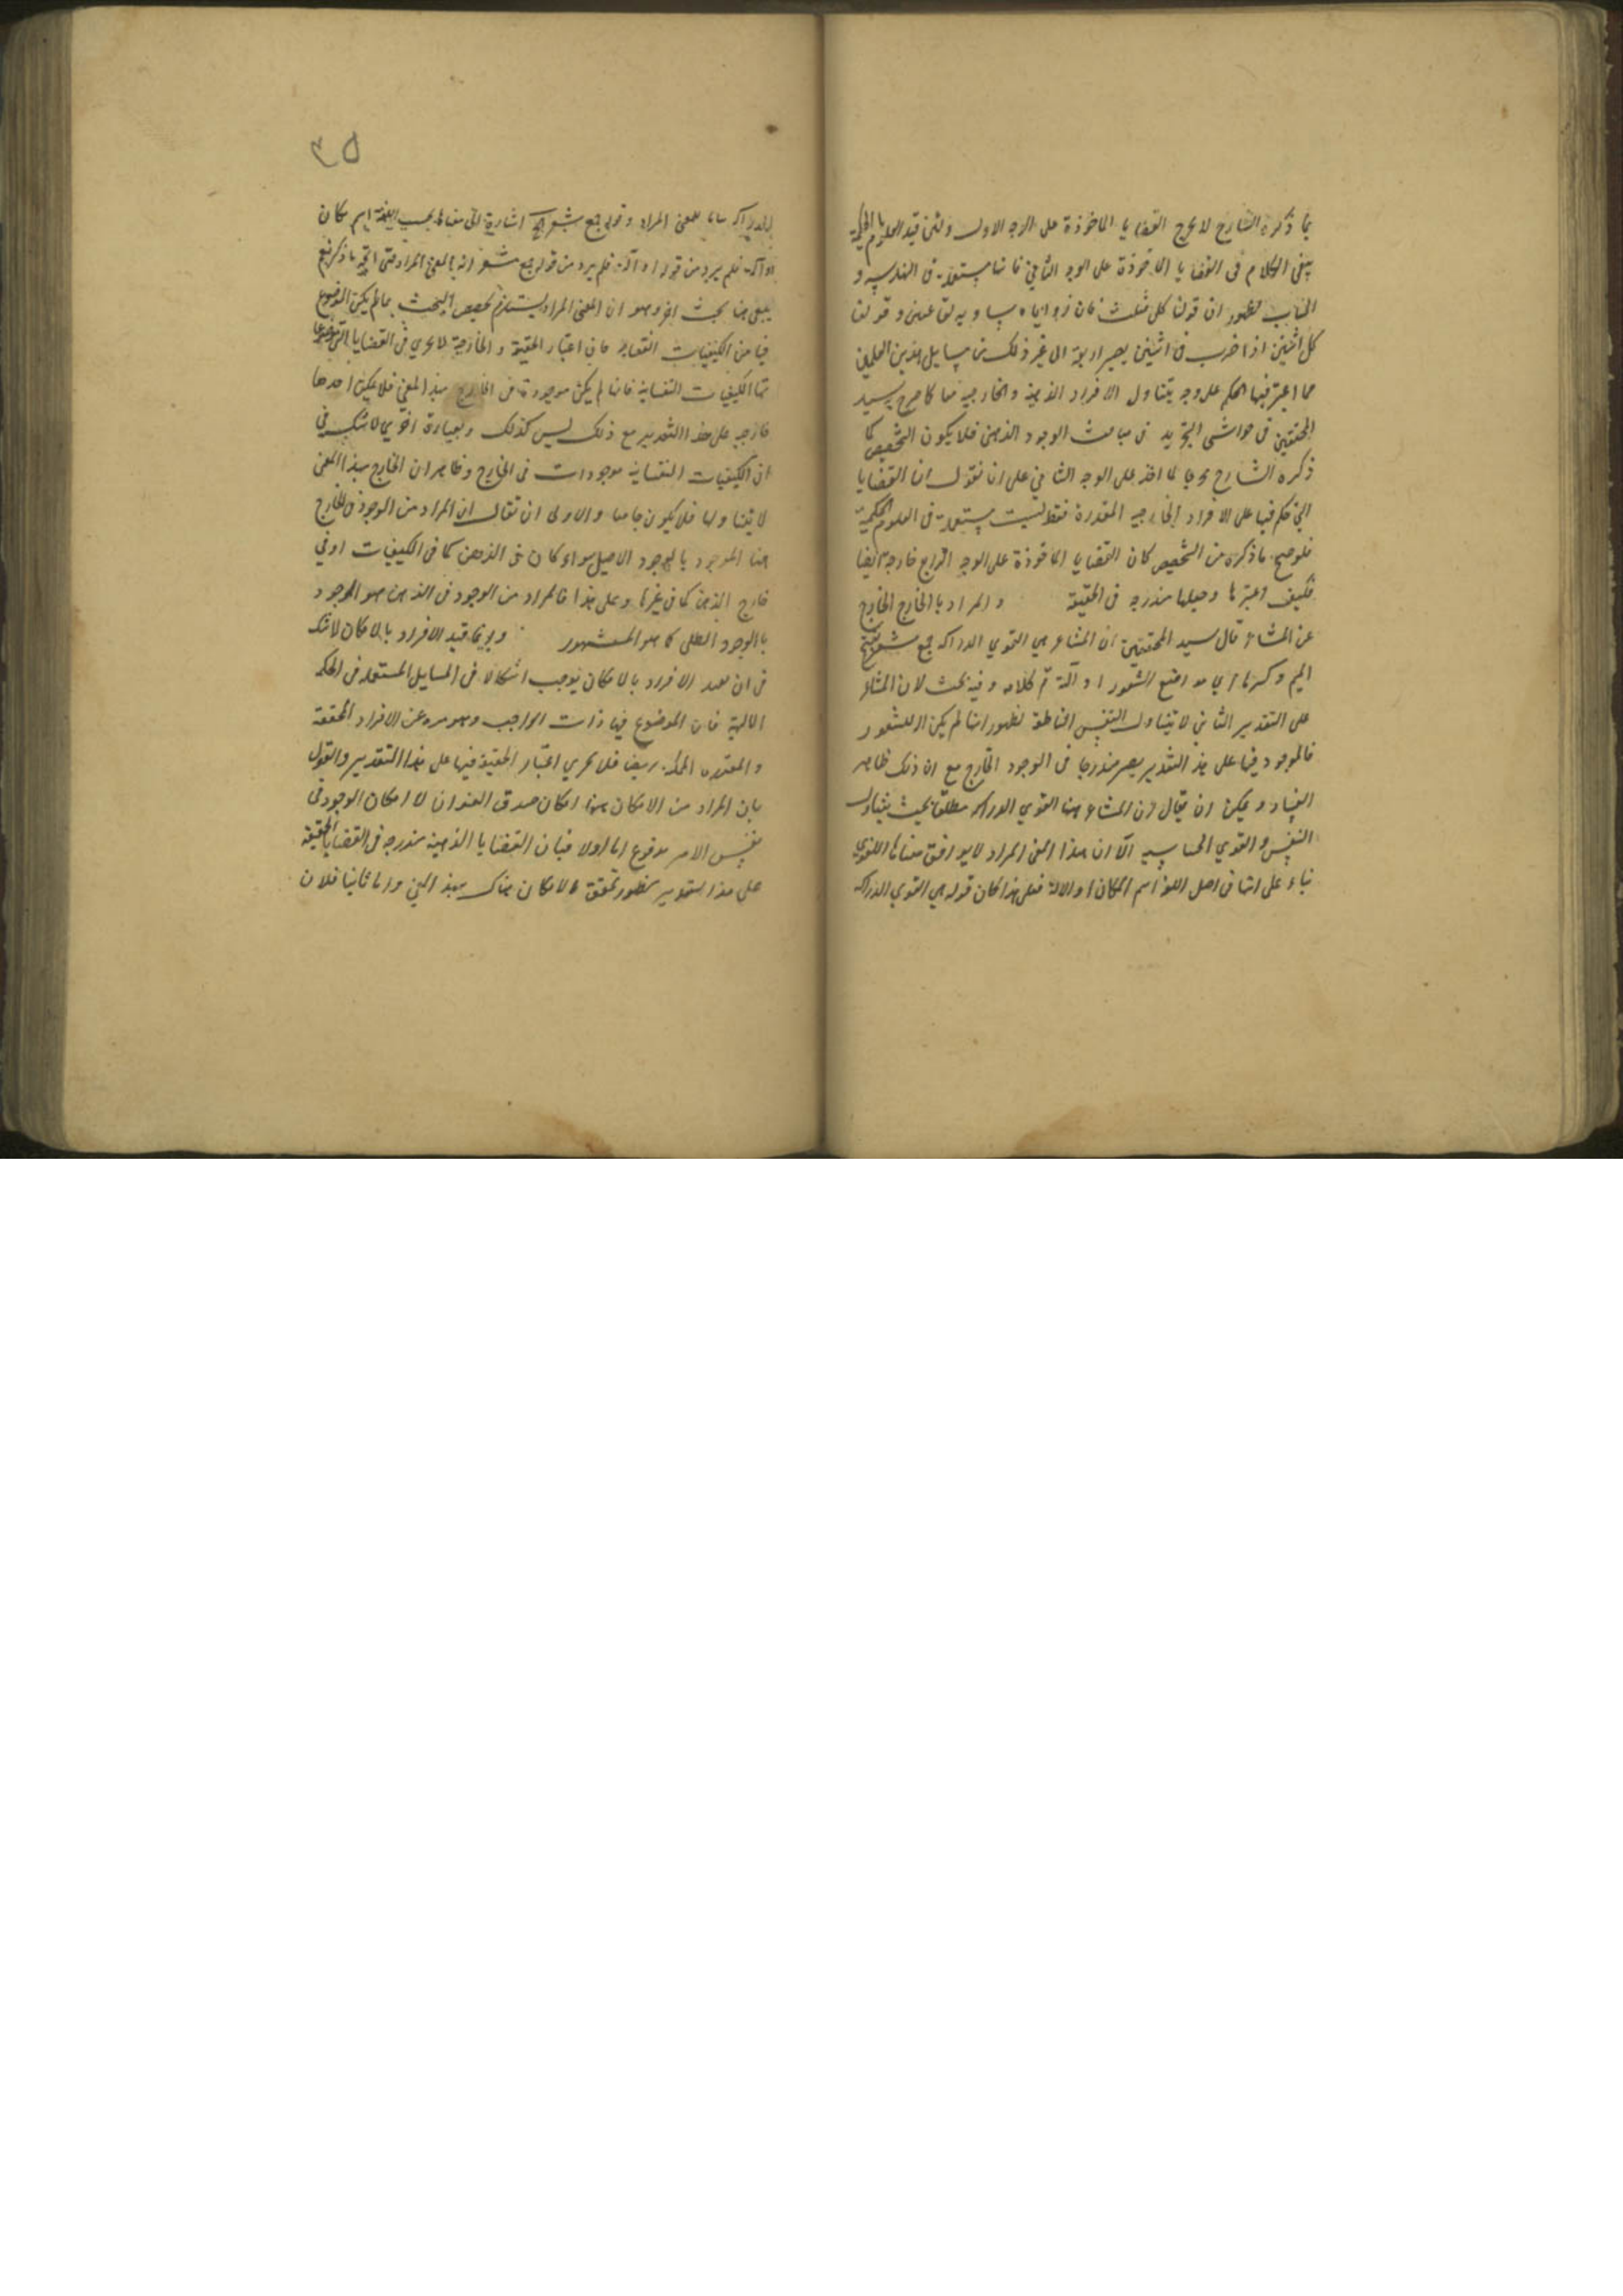 بما ذكره الشارح لا يخرج القضايا الماخوذة على الوجه الاول ولئن قيد العلوم بالحكمية
يبقى الكلام فى القضايا الماخوذة على الوجه الثاني فانها مستعملة فى الهندسه و
الحساب لظهور ان قولنا كل مثلث فان زواياه مساويه لقائمتين و قولنا
كل اثنين اذا ضرب فى اثنين يصير اربعة الى غير ذلك من مسايل هذين العلمين
مما اعتبر فيها الحكم على وجه يتناول الافراد الذهنية والخارجية معا كما صرح به سيد
المحققين فى حواشى التجريد فى مباحث الوجود الذهنى فلا يكون التخصيص كما
ذكره الشارح مخرجا لما اخذ على الوجه الثاني على انا نقول ان القضايا
التي حكم فيها على الافراد الخارجيه المقدرة فقط ليست مستعملة فى العلوم الحكمية
فلو صح ما ذكره من التخصيص كان القضايا الماخوذة على الوجه الرابع خارجة ايضا
فكيف اعتبرها وجعلها مندرجه فى الحقيقة والمراد بالخارج الخارج
عن المشاعر قال سيد المحققين ان المشاعر هي القوي الدراكه جمع مشعر بفتح
الميم وكسرها اي موضع الشعور او آلته تم كلامه وفيه بحث لان المشاعر
على التقدير الثاني لا يتناول النفس الناطقة لظهور انها لم يكن الة للشعور
فالموجود فيها على هذا التقدير يصير مندرجا فى الوجود الخارج مع ان ذلك ظاهر
الفساد ويمكن ان يقال ان المشاعر هنا القوي الدراكه مطلقا بحيث يتناول
النفس والقوي الحساسيه الا ان هذا المعنى المراد لا يوافق معناها اللغوي
بناء على انها فى اصل اللغة اسم المكان او الالة فعلى هذا كان قوله هي القوي الدراكه
٣٥
الدراكه بيانا للمعنى المراد وقوله جمع مشعر اشارة الى معناها بحسب اللغة اسم مكان
او آلة فلم يرد من قوله او آلته فلم يرد من قوله جمع مشعر انه المعنى المراد حتى اتجه ما ذكر نعم
يبقى هنا بحث اخر وهو ان المعنى المراد يستلزم تخصيص البحث بما لم يكن الموضوع
فيها من الكيفيات النفسانية فان اعتبار الحقيقة والخارجية لا يجري فى القضايا التى موضوعها
الكيفيات النفسانية فانها لم يكن موجودة فى الخارج بهذا المعنى فلا يكون احدها
خارجيه على هذا التقدير مع ذلك ليس كذلك وبعبارة اخرى لا شك فى
ان الكيفيات النفسانية موجودات فى الخارج وظاهر ان الخارج بهذا المعنى
لا يتناولها فلا يكون جامعا والاولى ان يقال ان المراد من الوجود فى الخارج
هنا الموجود بالوجود الاصيل سواء كان فى الذهن كما فى الكيفيات او فى
خارج الذهن كما فى غيرها وعلى هذا فالمراد من الوجود فى الذهن هو الموجود
بالوجود الظلى كما هو المشهور وانما قيد الافراد بالامكان لا شك
فى ان تقييد الافراد بالامكان يوجب اشكالا فى المسايل المستعمله فى الحكمة
الالهية فان الموضوع فيها ذات الواجب وهو منزه عن الافراد المحققة
والمقدره فلا يجري اعتبار الحقيقة فيها على هذا التقدير والقول
بان المراد من الامكان هنا امكان صدق العنوان لا امكان الوجود فى
نفس الامر مدفوع اما اولا فبان القضايا الذهنية مندرجه فى القضايا الحقيقية
على هذا التقدير لظهور تحقق الامكان هناك بهذا المعنى واما ثانيا فلان